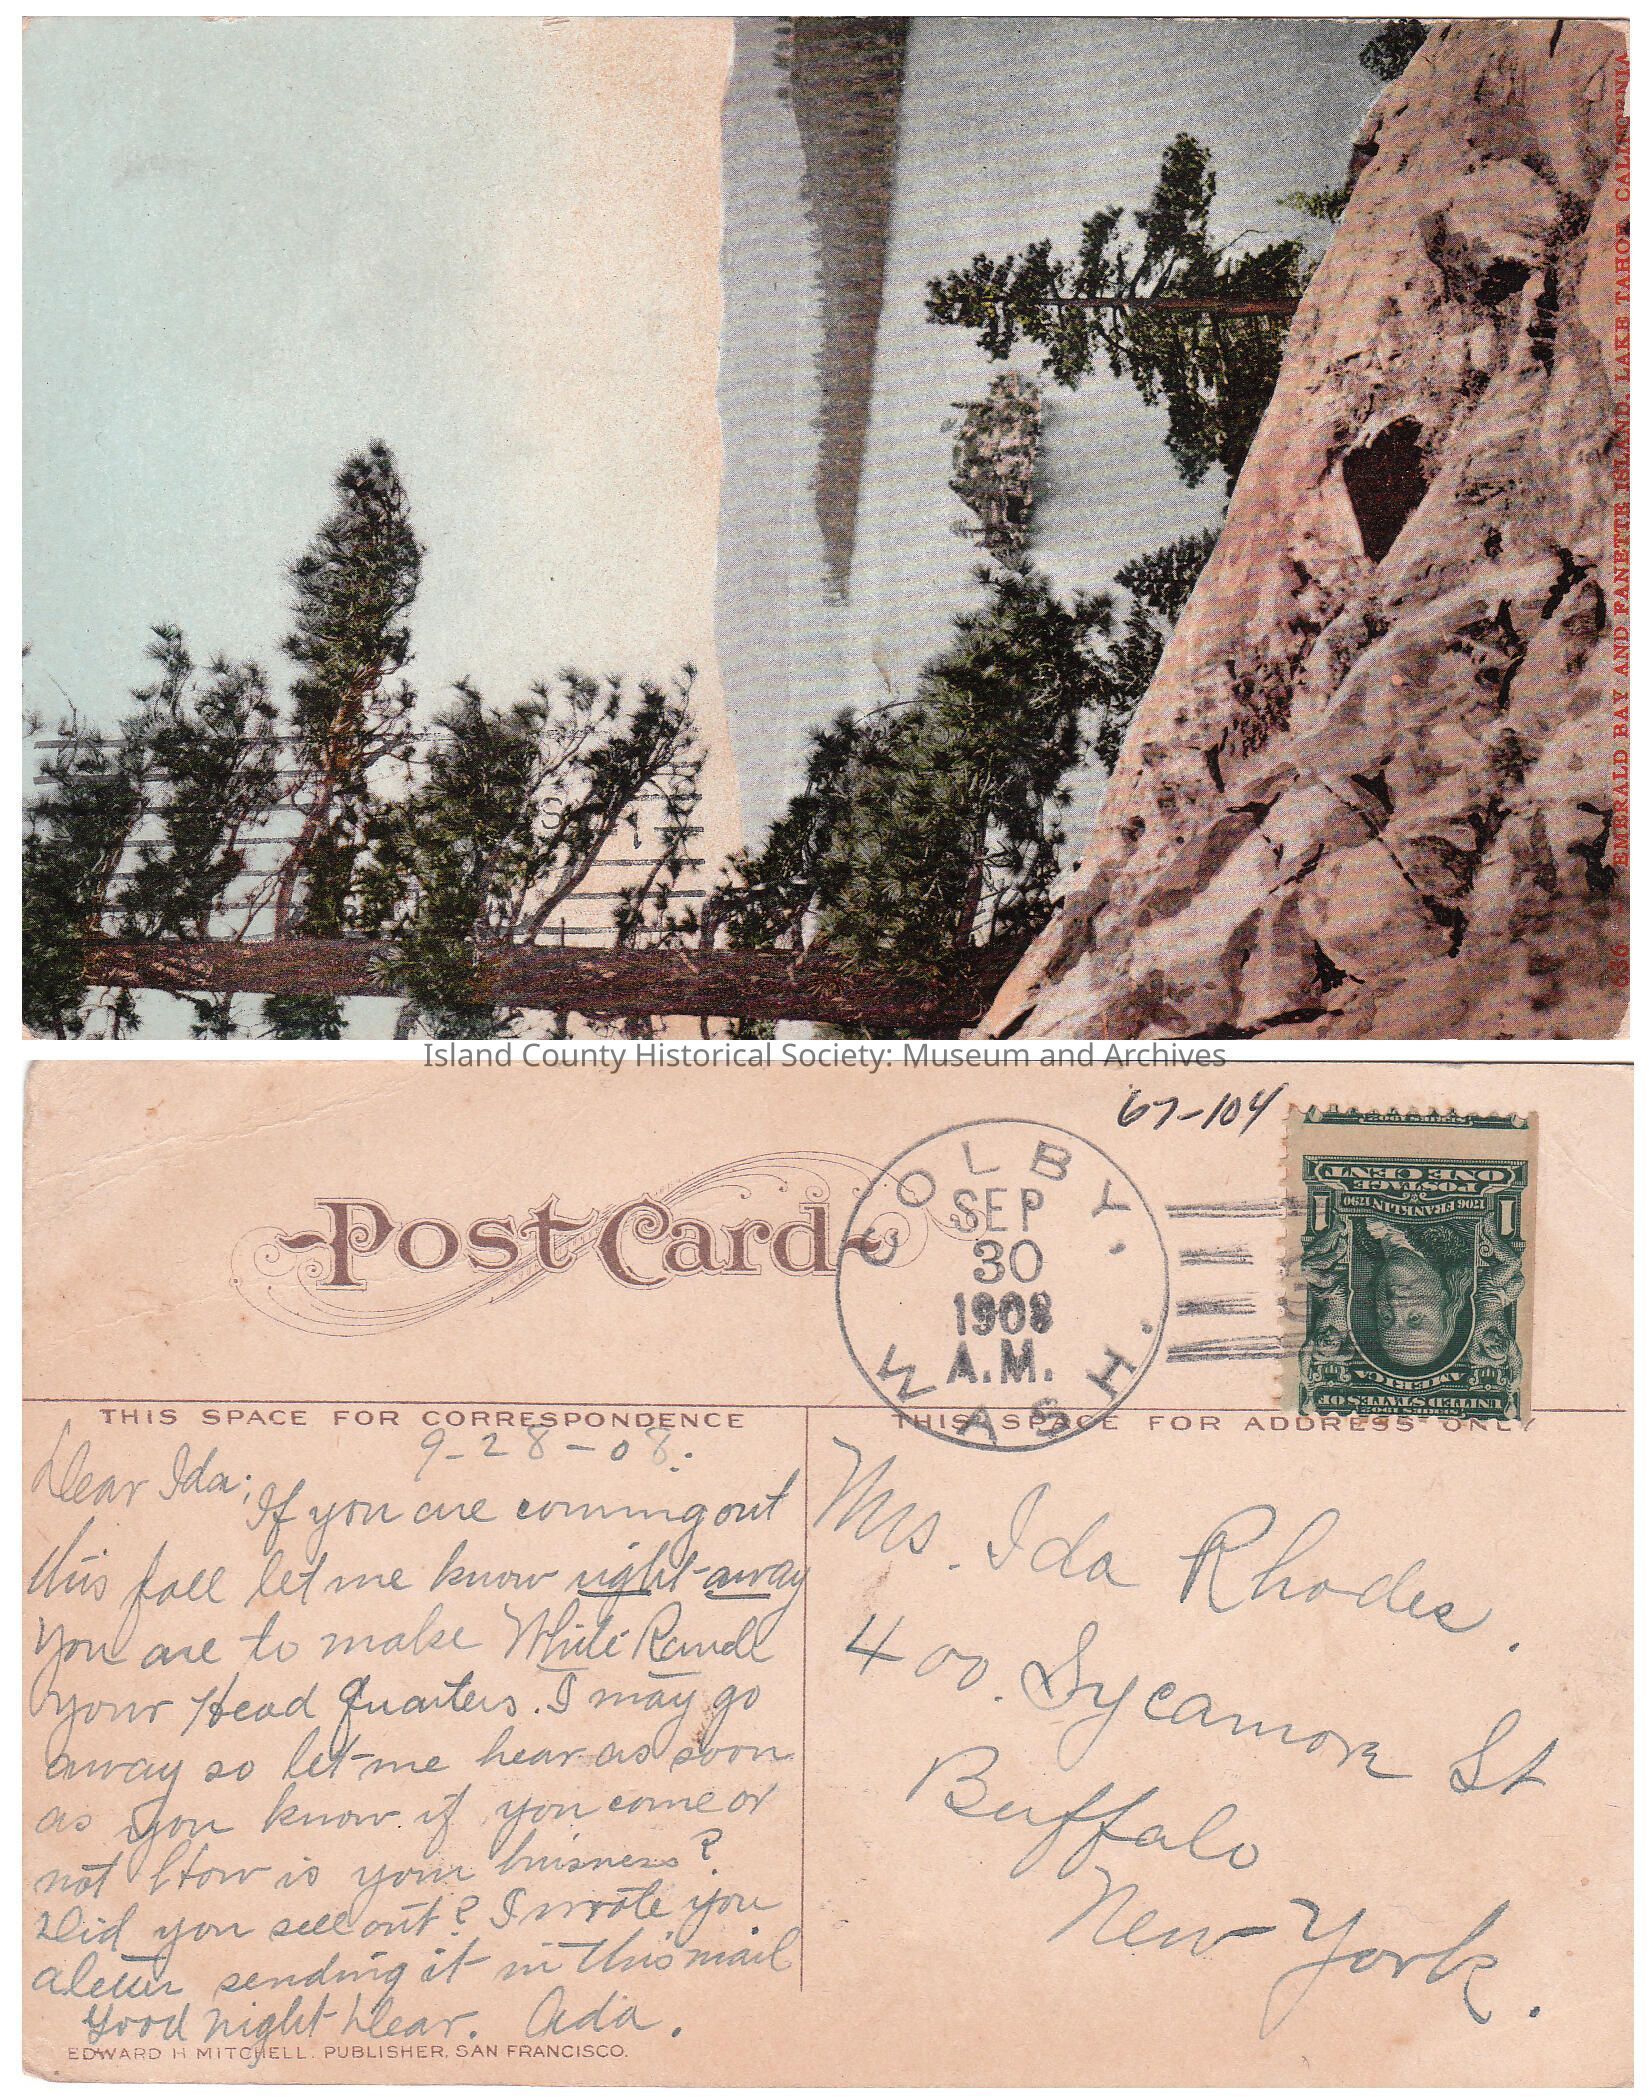 636 - EMERALD BAY AND FANETTE ISLAND, LAKE TAHOE, CALIFORNIA
Island County Historical Society: Museum and Archives
67-104
Post Card
COLBY.
SEP
30
1908
A.M.
WASH.
SERIES 1902
UNITED STATES OF
AMERICA
1706 FRANKLIN 1790
POSTAGE
1 ONE CENT 1
THIS SPACE FOR CORRESPONDENCE
THIS SPACE FOR ADDRESS ONLY
9-28-08.
Dear Ida;
If you are coming out
this fall let me know right-away
You are to make White Ranch
your Head Quarters. I may go
away so let me hear as soon
as you know if you come or
not How is your buisness?
Did you sell out? I wrote you
a letter sending it in this mail
Good night Dear. Ada.
Mrs. Ida Rhodes.
400. Sycamore St
Buffalo
New-York.
EDWARD H MITCHELL. PUBLISHER, SAN FRANCISCO.